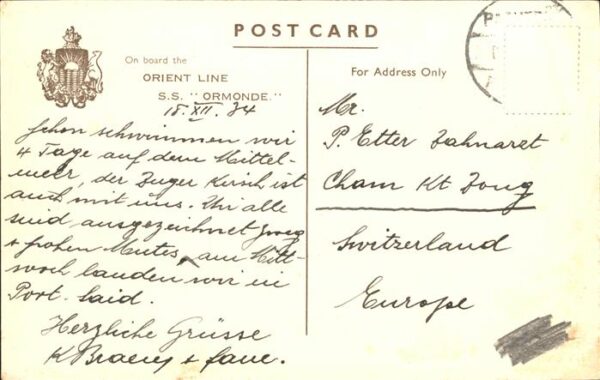 POST CARD
On board the
ORIENT LINE
S.S. "ORMONDE."
18. XII. 34
Schon schwimmen wir
4 Tage auf dem Mittel-
meer, der Zuger Kirsch ist
auch mit uns. Wir alle
sind ausgezeichnet zweg
+ frohen Mutes, am Mitt-
woch landen wir in
Port. Said.
Herzliche Grüsse
K + fam.
For Address Only
Mr.
P. Etter Zahnarzt
Cham Kt Zoug
Switzerland
Europe